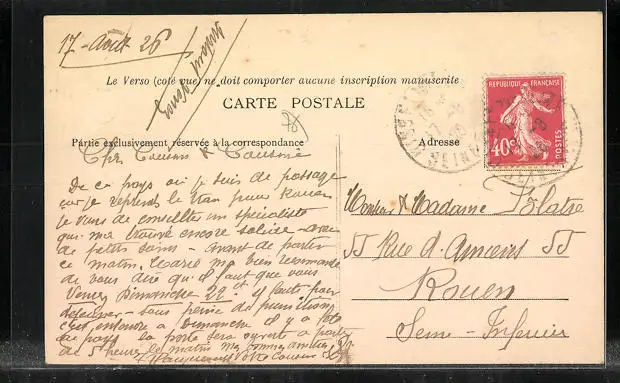 17 - Août 26
Le Verso (coté vue) ne doit comporter aucune inscription manuscrite
CARTE POSTALE
Partie exclusivement réservée à la correspondance
Adresse
REPUBLIQUE FRANÇAISE
40c
POSTES
Chers Cousin & Cousine
De ce pays où je suis de passage
car je reprends le train pour Rouen
je viens de consulter un spécialiste
qui m'a trouvé encore solide - avec
de petits soins - avant de partir
ce matin Marie m'a bien recommandé
de vous dire qu'il faut que vous
Veniez Dimanche 22 et il faut pour
déjeuner - sous peine de punition
c'est entendu à Dimanche il y a fête
au pays la porte sera ouverte à partir
de 5 heures du matin
votre Cousin
Monsieur & Madame Blatre
55 Rue d'Amiens 55
Rouen
Seine-Inférieure